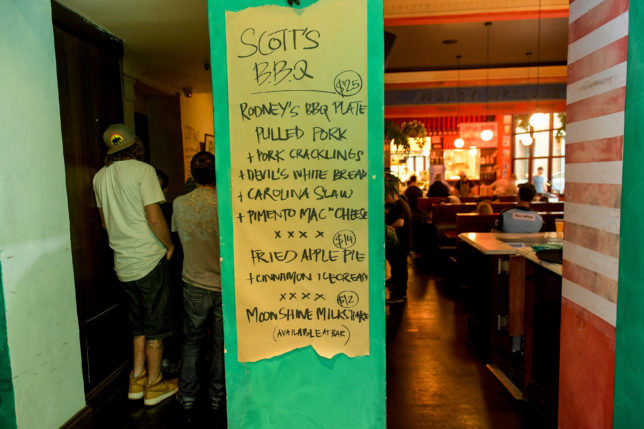 SCOTT'S
B.B.Q
$25
RODNEY'S BBQ PLATE
PULLED PORK
+ PORK CRACKLINGS
+ DEVIL'S WHITE BREAD
+ CAROLINA SLAW
+ PIMENTO MAC "CHEESE
x x x x $14
FRIED APPLE PIE
+ CINNAMON ICECREAM
x x x x $12
MOONSHINE MILKSHAKE
(AVAILABLE AT BAR)